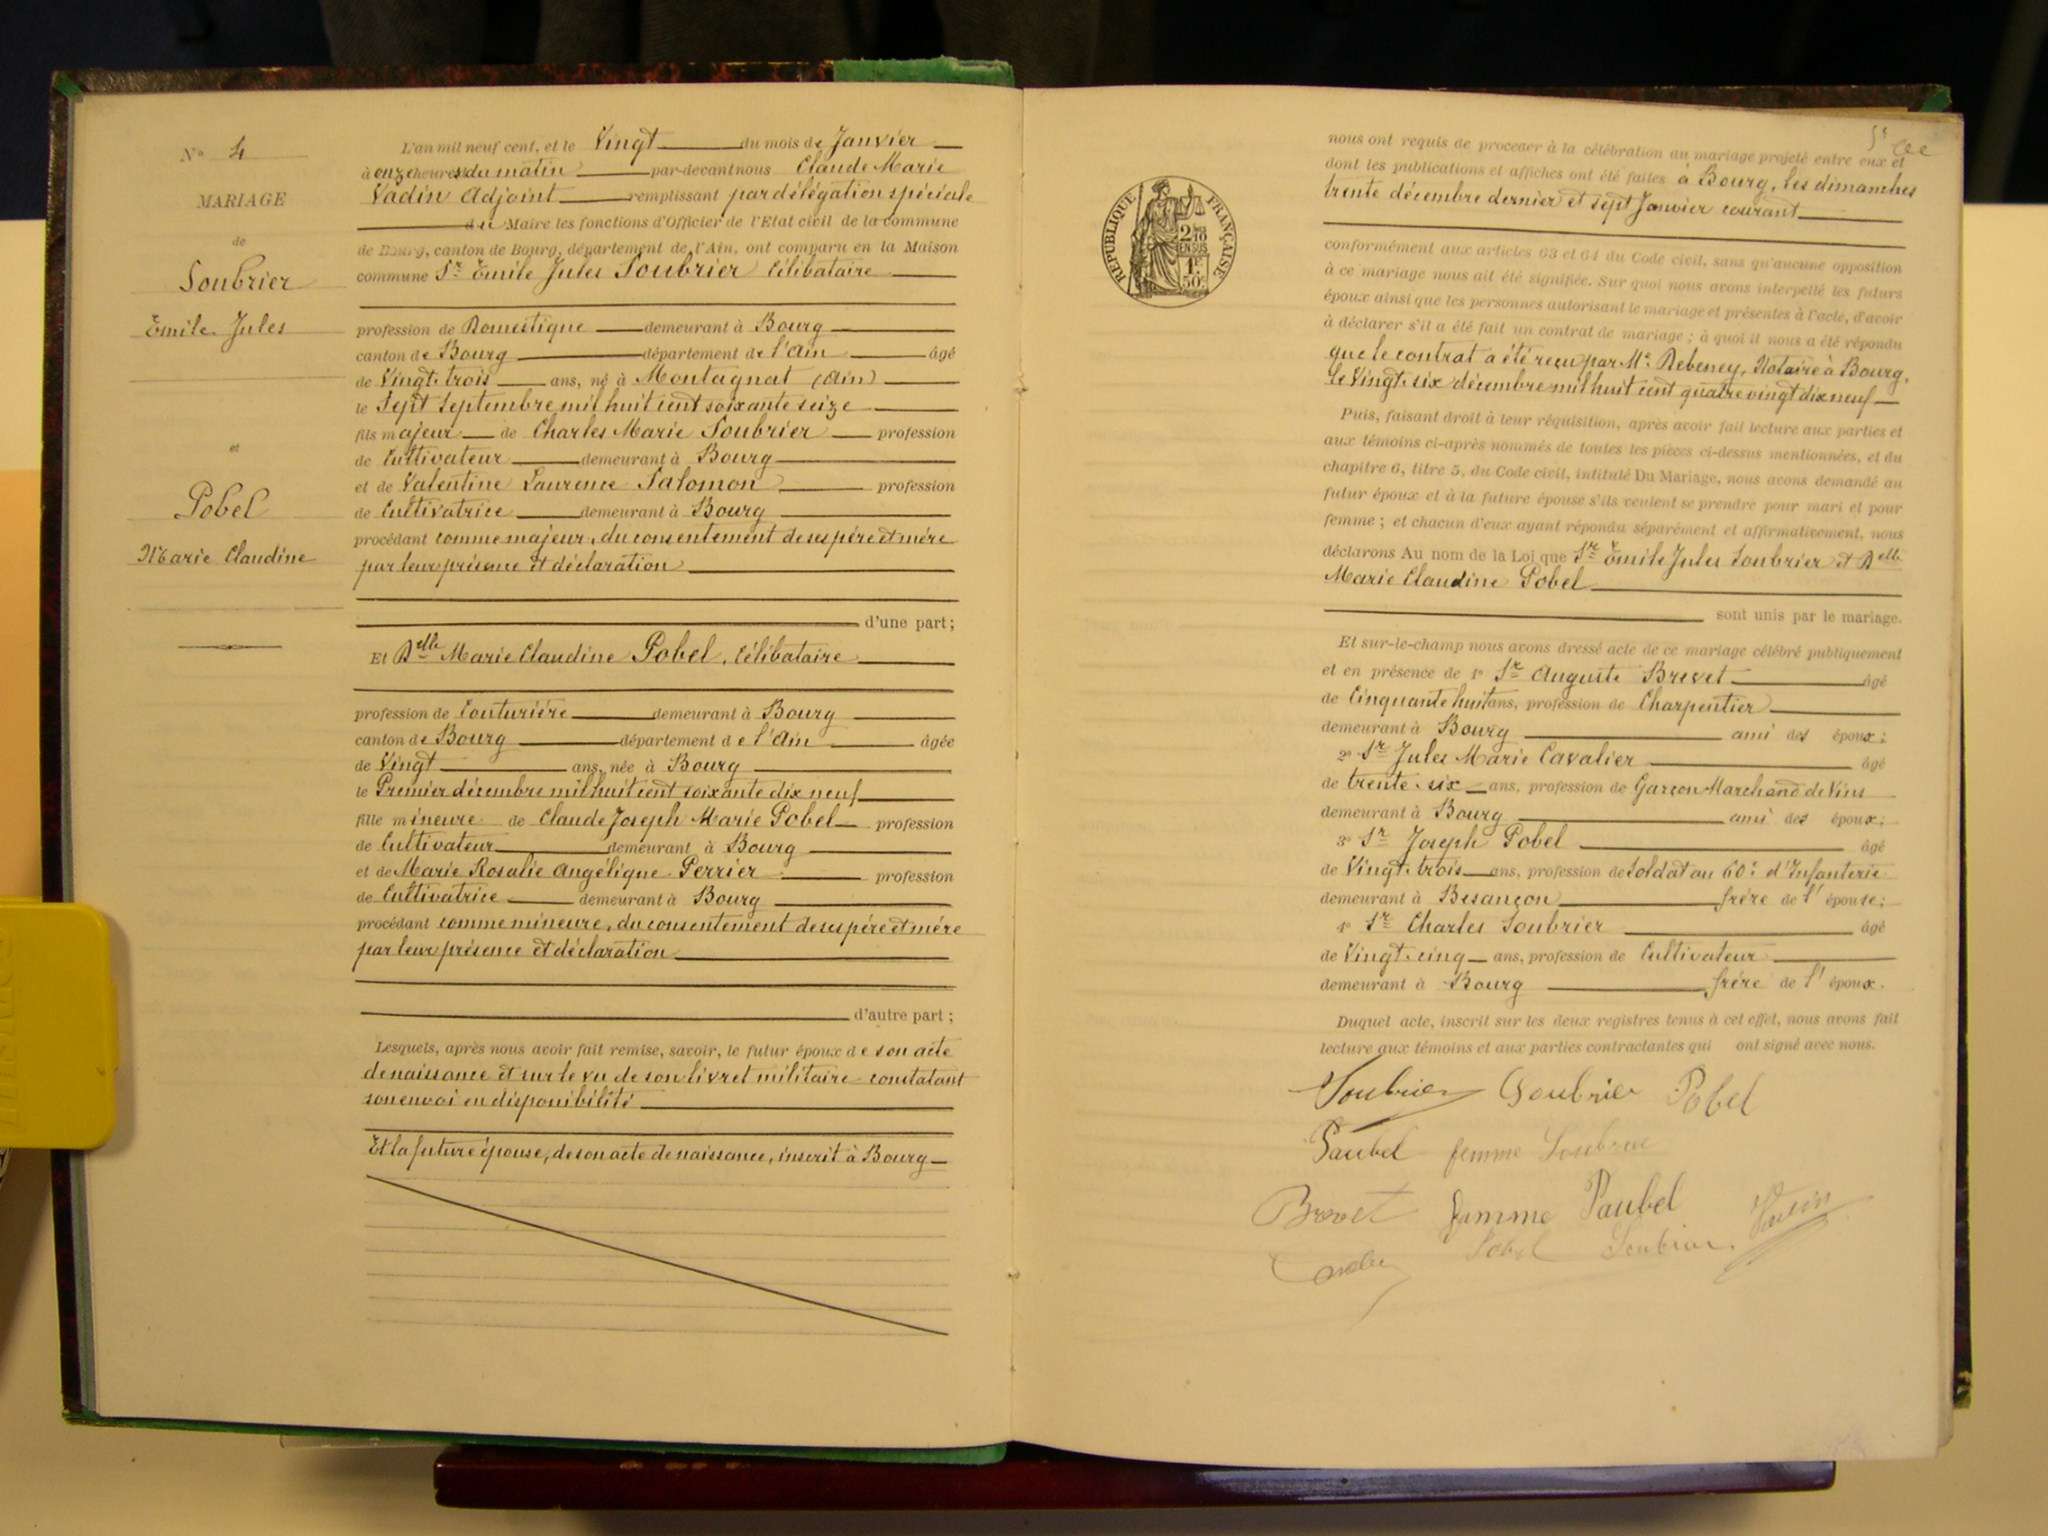 N° 4
MARIAGE
de
Soubrier
Emile Jules
et
Pobel
Marie Claudine
L'an mil neuf cent, et le Vingt du mois de Janvier
à onze heures du matin par-devant nous Claude Marie
Vadin Adjoint remplissant par délégation spéciale
du Maire les fonctions d'Officier de l'Etat civil de la commune
de Bourg, canton de Bourg, département de l'Ain, ont comparu en la Maison
commune Sr Emile Jules Soubrier célibataire
profession de Domestique demeurant à Bourg
canton de Bourg département de l'Ain âgé
de Vingt-trois ans, né à Montagnat (Ain)
le Sept Septembre mil huit cent soixante seize
fils majeur de Charles Marie Soubrier profession
de Cultivateur demeurant à Bourg
et de Valentine Laurence Salomon profession
de Cultivatrice demeurant à Bourg
procédant comme majeur, du consentement de ses père et mère
par leur présence et déclaration
d'une part;
Et Delle Marie Claudine Pobel, célibataire
profession de Couturière demeurant à Bourg
canton de Bourg département de l'Ain âgée
de Vingt ans, née à Bourg
le Premier décembre mil huit cent soixante dix neuf
fille mineure de Claude Joseph Marie Pobel profession
de Cultivateur demeurant à Bourg
et de Marie Rosalie Angélique Perrier profession
de Cultivatrice demeurant à Bourg
procédant comme mineure, du consentement de ses père et mère
par leur présence et déclaration
d'autre part;
Lesquels, après nous avoir fait remise, savoir, le futur époux de son acte
de naissance et sur le vu de son livret militaire constatant
son envoi en disponibilité
Et la future épouse, de son acte de naissance, inscrit à Bourg
RÉPUBLIQUE FRANÇAISE
2/10
EN SUS
1F
50c
nous ont requis de procéder à la célébration du mariage projeté entre eux et
dont les publications et affiches ont été faites à Bourg, les dimanches
trente décembre dernier et sept Janvier courant
conformément aux articles 63 et 64 du Code civil, sans qu'aucune opposition
à ce mariage nous ait été signifiée. Sur quoi nous avons interpellé les futurs
époux ainsi que les personnes autorisant le mariage et présentes à l'acte, d'avoir
à déclarer s'il a été fait un contrat de mariage; à quoi il nous a été répondu
que le contrat a été reçu par Me Debeney, Notaire à Bourg,
le Vingt-six décembre mil huit cent quatre vingt dix neuf
Puis, faisant droit à leur réquisition, après avoir fait lecture aux parties et
aux témoins ci-après nommés de toutes les pièces ci-dessus mentionnées, et du
chapitre 6, titre 5, du Code civil, intitulé Du Mariage, nous avons demandé au
futur époux et à la future épouse s'ils veulent se prendre pour mari et pour
femme; et chacun d'eux ayant répondu séparément et affirmativement, nous
déclarons Au nom de la Loi que Sr Emile Jules Soubrier et Delle
Marie Claudine Pobel
sont unis par le mariage.
Et sur-le-champ nous avons dressé acte de ce mariage célébré publiquement
et en présence de 1° Sr Auguste Brevet âgé
de Cinquante huit ans, profession de Charpentier
demeurant à Bourg ami des époux;
2° Sr Jules Marie Cavalier âgé
de trente-six ans, profession de Garçon Marchand de Vins
demeurant à Bourg ami des époux;
3° Sr Joseph Pobel âgé
de Vingt-trois ans, profession de Soldat au 60e d'Infanterie
demeurant à Besançon frère de l'épouse;
4° Sr Charles Soubrier âgé
de Vingt-cinq ans, profession de Cultivateur
demeurant à Bourg frère de l'époux.
Duquel acte, inscrit sur les deux registres tenus à cet effet, nous avons fait
lecture aux témoins et aux parties contractantes qui ont signé avec nous.
Soubrier Soubrier Pobel
Paubel femme Soubrier
Brevet femme Paubel Vadin
Pobel Soubrier